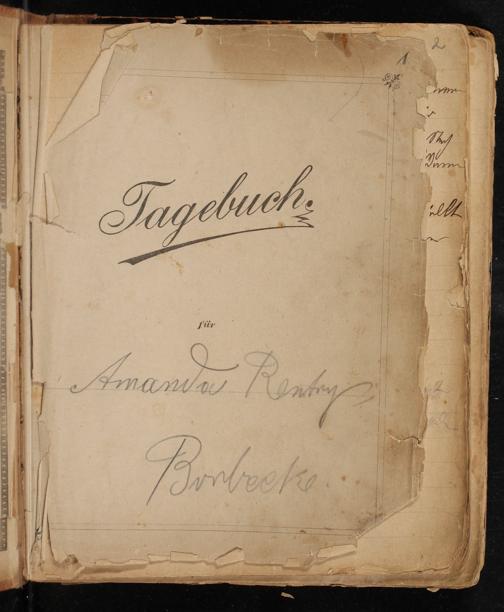 1
2
Tagebuch.
für
Amanda Rentry
Borbeck.